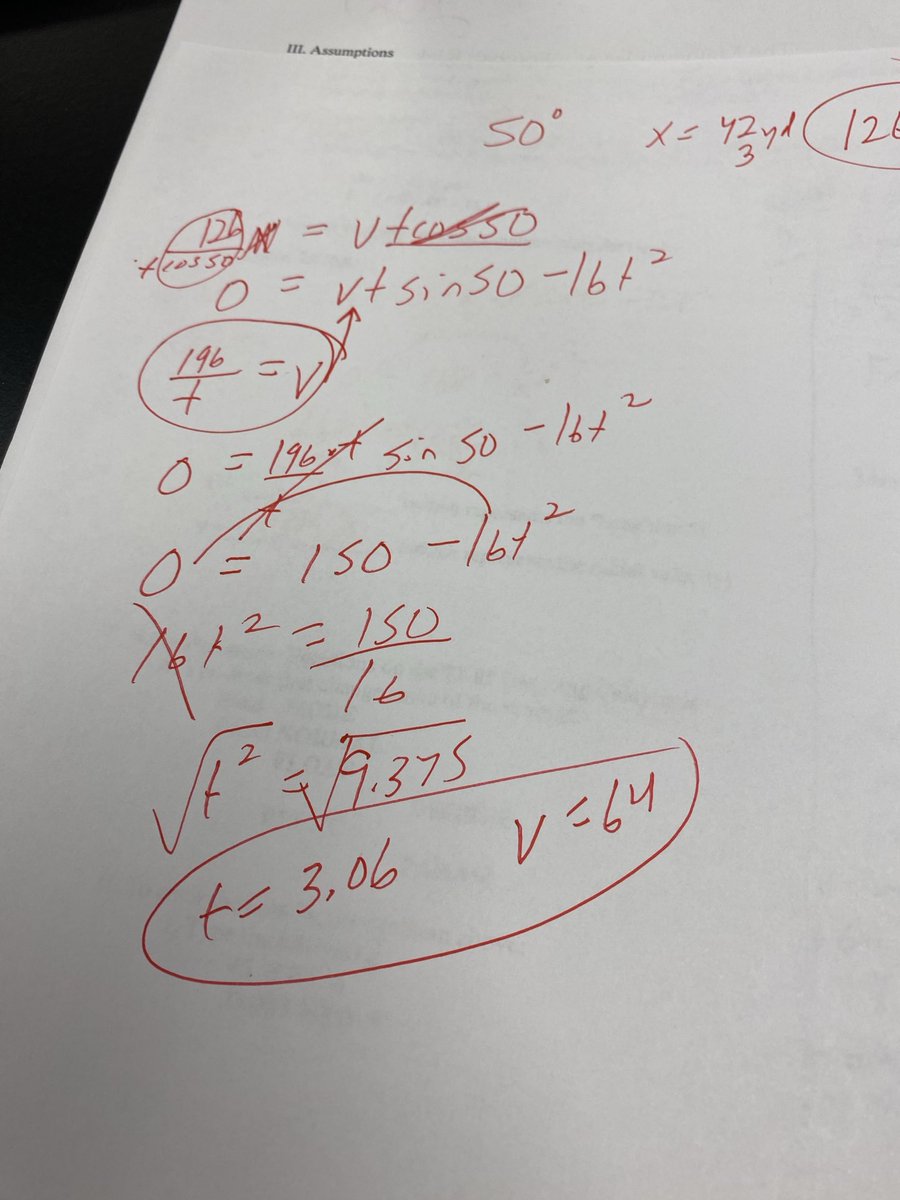 III. Assumptions
50° x = 42 yd 126
3
126 / t cos 50 = v t cos 50
0 = vt sin 50 - 16t²
196 / t = v
0 = 196 t / t sin 50 - 16t²
0 = 150 - 16t²
16t² = 150 / 16
√t² = √9.375
t = 3.06 v = 64